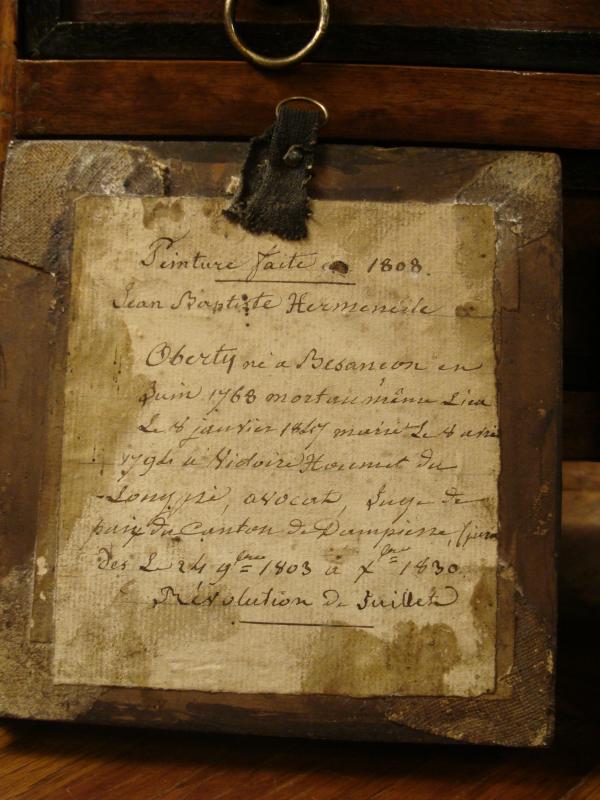 Peinture faite en 1808.
Jean Baptiste Hermenegile
Oberty né a Besançon en
Juin 1768 mort au même Lieu
Le 8 janvier 1847 marié Le 8 avril
1794 à Victoire Houmet du
Longpré, avocat, Juge de
paix du Canton de Dampierre, (jura
Des Le 24 9bre 1803 à Xbre 1830.
Révolution de Juillet